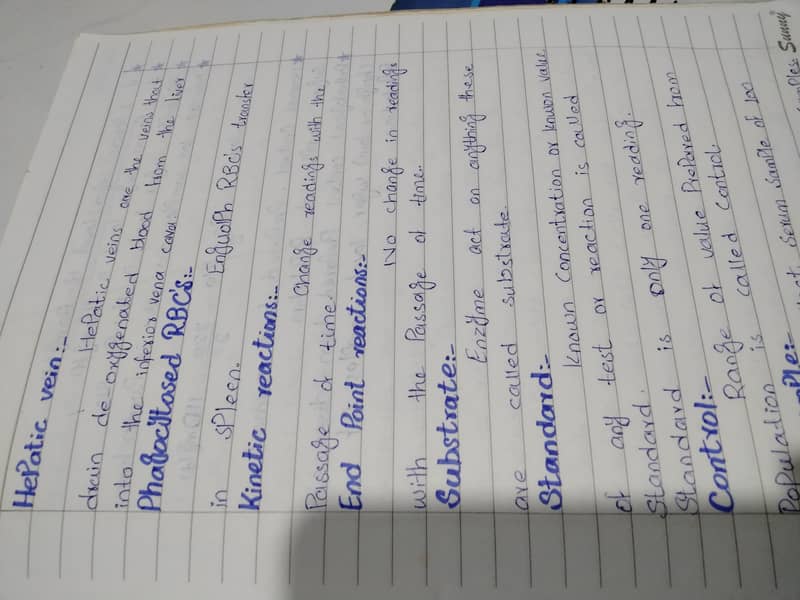 HePatic vein:-
HePatic veins are the veins that
drain de-oxygenated blood from the liver
into the inferior vena cava.
Phagocitosed RBC's:-
EnguolPh RBC's transfer
in SPleen.
Kinetic reactions:-
Change readings with the
Passage of time.
End Point reactions:-
No change in readings
with the Passage of time.
Substrate:-
Enzyme act on anything these
are called substrate.
Standard:-
Known Concentration or known value
of any test or reaction is called
Standard.
Standard is only one reading.
Control:-
Range of value Prepared from
Population is called Control.
serum sample of 100
mple:-
Sunny